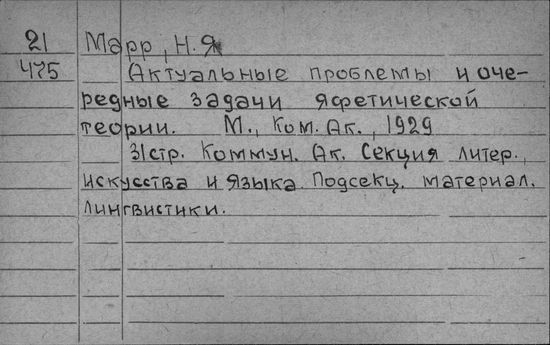 21 Марр, Н.Я
475 Актуальные проблемы и оче-
редные задачи яфетической
теории. М., Ком. Ак., 1929
31стр. Коммун. Ак. Секция литер.,
искусства и языка. Подсекц. материал.
лингвистики.